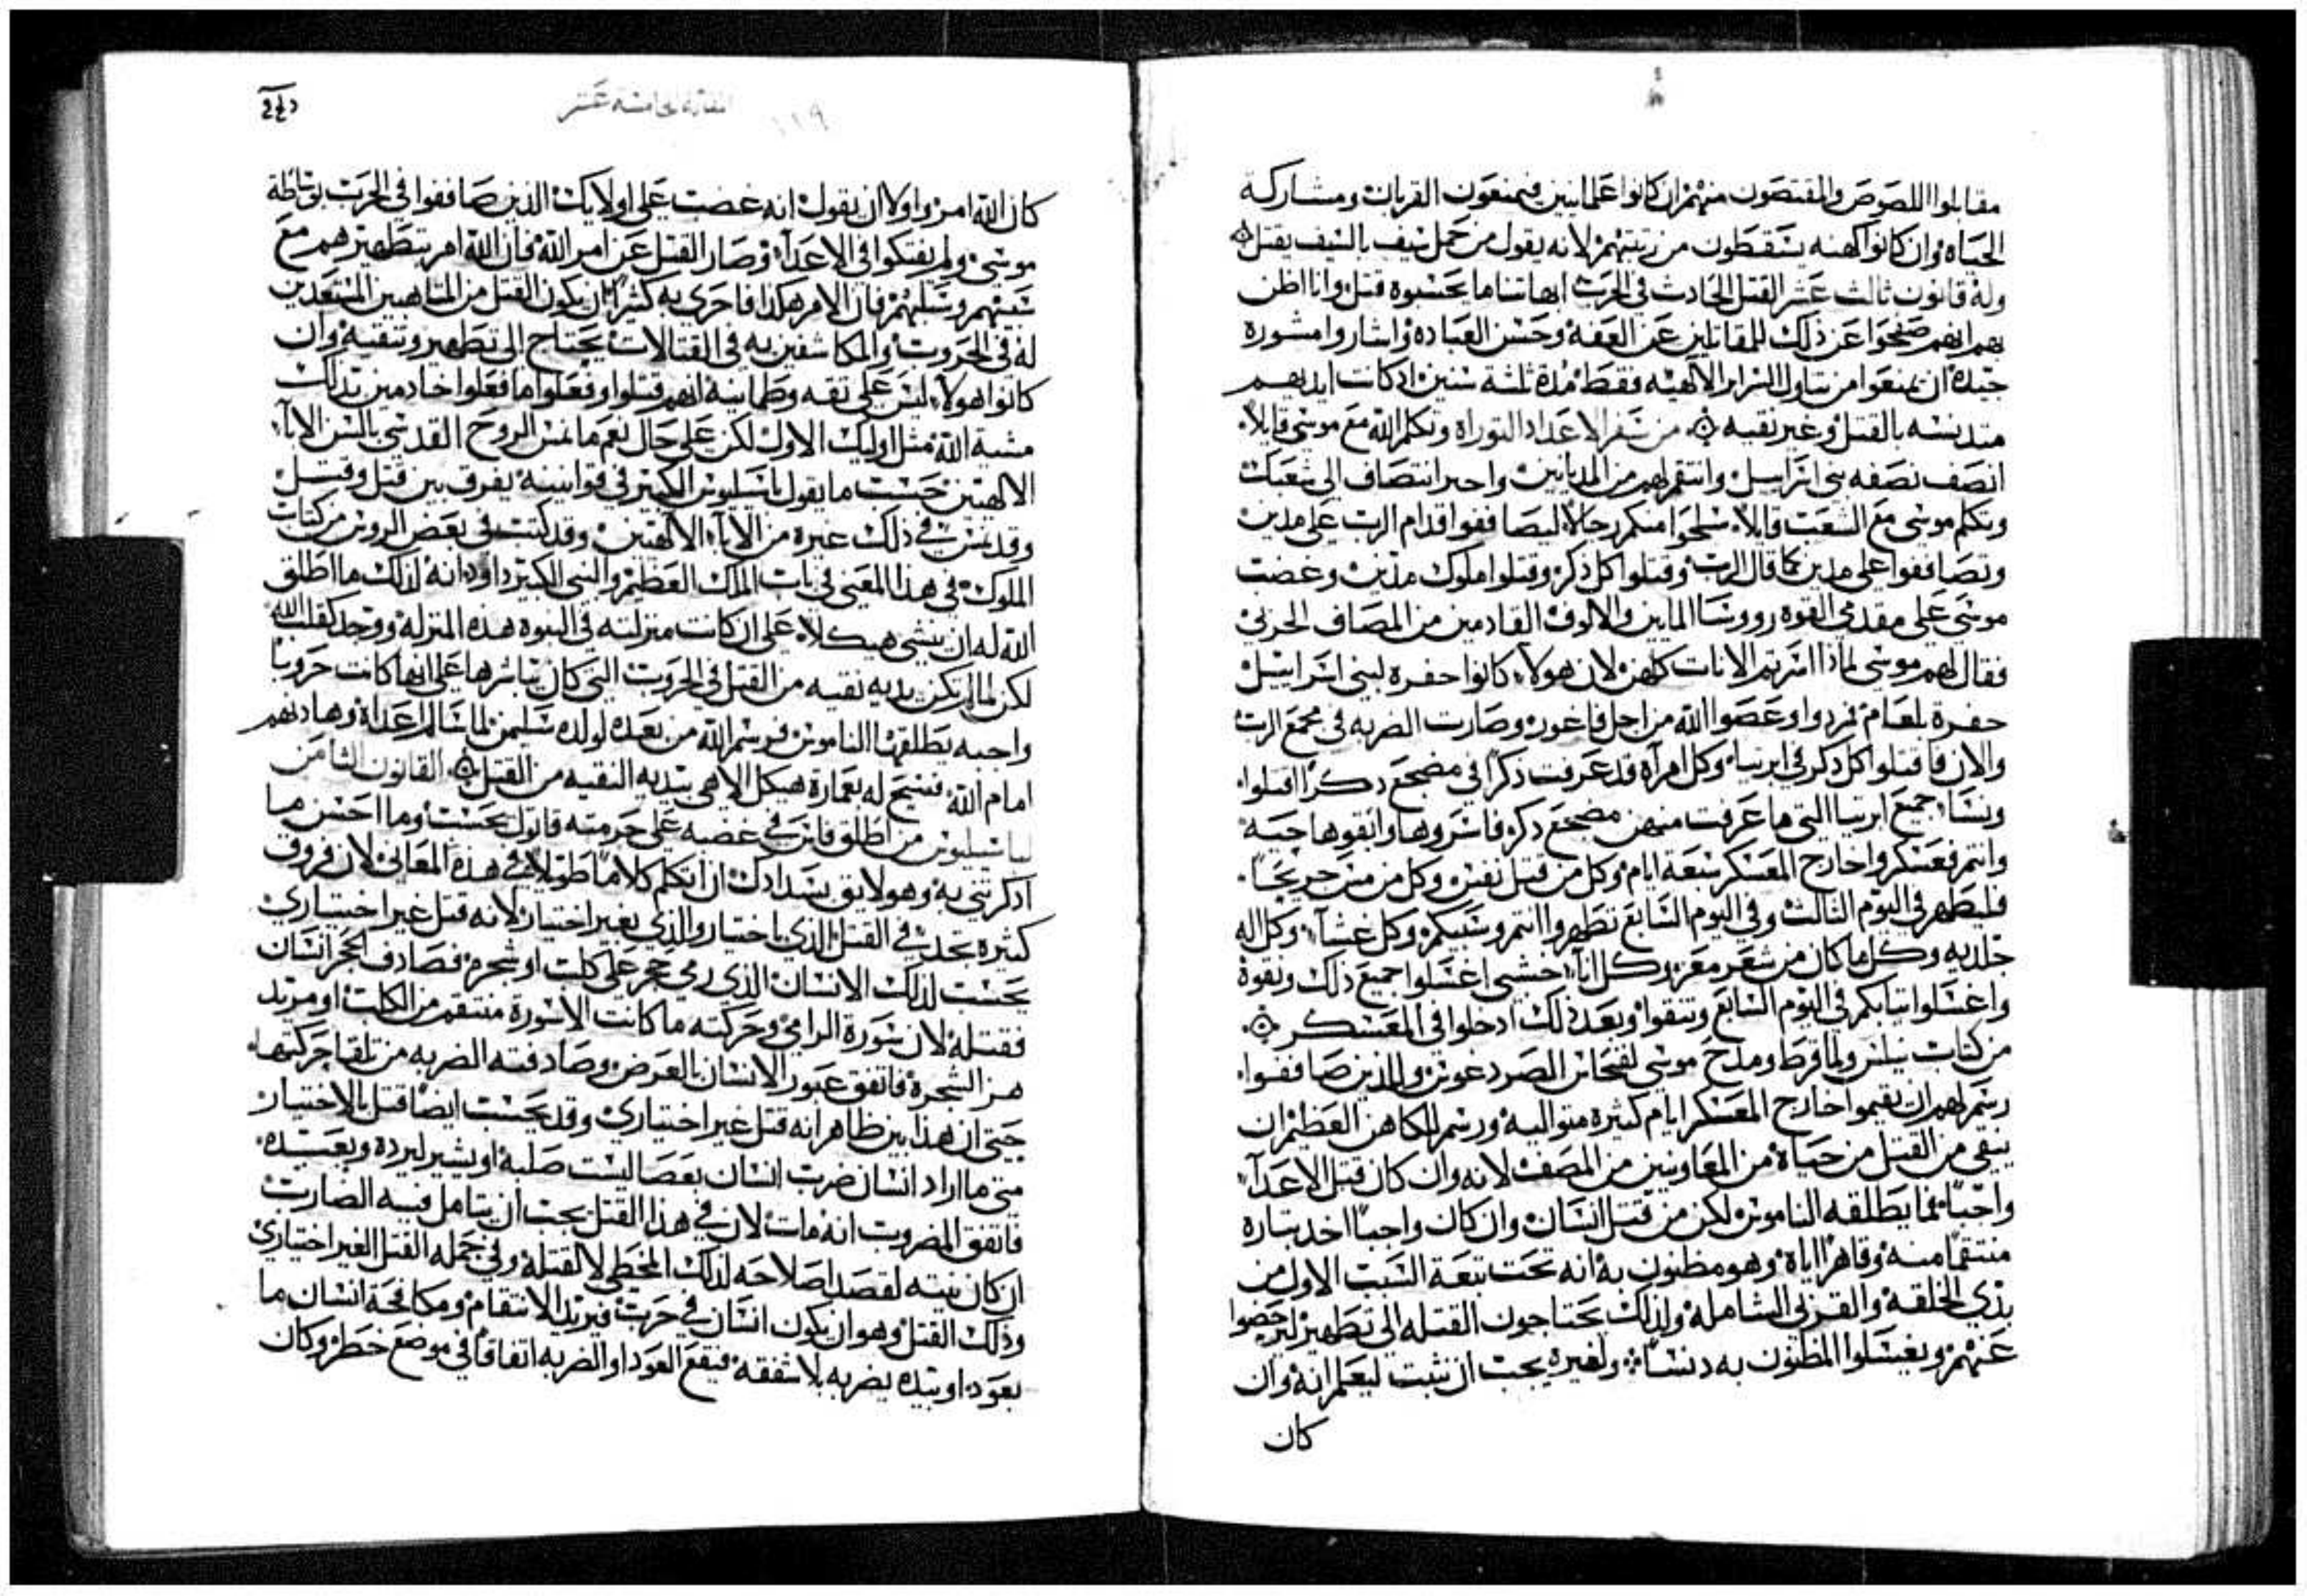 مقابلوا اللصوص والمقتصون منهم ان كانوا عَلمانيين فيمنعون القربان ومشاركة
الحياة وان كانوا كهنه يسقطون من رتبتهم لانه يقول من حمل سيف بالسيف يقتل
وله قانون ثالث عشر القتل الحادث في الحرب ابهاتنا ما يحسبوه قتل وانا اظن
بهم انهم صفحوا عن ذلك للمقاتلين عن العفة وحسن العباده واشاروا مشورة
جيدة ان يمنعوا من تناول السراير الالهيه فقط مدة ثلثة سنين اد كانت ايديهم
متدنسه بالقتل وغير نقيه من سفر الاعداد التوراة وتكلم الله مع موسى قايلا
انصف نصفه بني اسراييل وانتقم لهم من المديانيين واحير انتصاف الى شعبك
وتكلم موسى مع الشعب قايلا سلحوا منكم رجالا ليصاففوا قدام الرب على مدين
وتصاففوا على مدين كما قال الرب وقتلوا كل ذكر وقتلوا ملوك مدين وغضب
موسى على مقدمي القوه رووسا الماين والالوف القادمين من المصاف الحربي
فقال لهم موسى لماذا اسرتم الانات كلهن لان هولاء كانوا حفرة لبني اسراييل
حفرة بلعام تمردوا وعصوا الله من اجل فاغور وصارت الضربه في مجمع الرب
والان فاقتلوا كل ذكر في ابرتيا وكل امرأه قد عرفت ذكرا في مضجع دكر اقتلوا
ونسا جميع ابرتيا التي ما عرفت منهن مضجع دكر فاسروها وابقوها حيه
وانتم فعسكروا خارج المعسكر سبعة ايام وكل من قتل نفس وكل من مس جريحا
فليطهر في اليوم الثالث وفي اليوم السابع تطهروا انتم وسبيكم وكل غشاء وكل اله
جلديه وكل ما كان من شعر معز وكل اناء خشبي اغسلوا جميع ذلك ونقوه
واغسلوا تيابكم في اليوم السابع وتنقوا وبعد ذلك ادخلوا في المعسكر
من كتاب نيلس ولما قرط ومدح موسى لفنحاس الصرد غوتن وللذين صاففوا
رسم لهم ان يقيموا خارج المعسكر ايام كثيرة متواليه ورسم للكاهن العظيم ان
ينقى من القتل من حياة من المعاونين من المصف لانه وان كان قتل الاعدآ
واجبا مما يطلقه الناموس لكن من قتل انسان وان كان واجبا اخد بتاره
منتقما منه وقاهرا اياه وهو مظنون به انه تحت تبعة السبب الاول من
بذي الخلقه والقربى الشامله ولذلك يحتاجون القتله الى تطهير ليرحضوا
عنهم ويغسلوا المظنون به دنسا ولغيره يجب ان نثبت ليعلم انه وان
كان
المقاله الخامسة عشر
١١٩
كان الله امر واولا ان يقول انه غضب على اولايك الذين صاففوا في الحرب بوساطة
موسى ولم يفتكوا في الاعدآ وصار القتل عن امر الله فان الله امر بتطهيرهم مع
سبيهم وسلبهم فان الامر هكذا فاحرى به كثيرا ان يكون القتل من المتاهبين المستعدين
له في الحروب والمكاشفين به في القتالات يحتاج الى تطهير وتنقيه وان
كانوا هولاء ليس على تقه وطمانينه انهم قتلوا وفعلوا ما فعلوا خادمين بذلك
مشية الله مثل اوليك الاول لكن على حال نعم ما نمس الروح القدسي بالسن الابآ
الالهيين حسب ما يقول باسيليوس الكبير في قوانينه يفرق بين قتل وقتل
وقد تيس في ذلك غيره من الابآء الالهيين وقد كتب في بعض الروس من كتاب
الملوك في هذا المعنى في باب الملك العظيم والنبي الكبير داود انه لذلك ما اطلق
الله له ان ينشي هيكلا على ان كانت منزلته في النبوه هذه المنزلة ووجد كقلب الله
لكن لما لم تكن يديه نقيه من القتل في الحروب التي كان يباشرها على انها كانت حروبا
واجبه يطلقها الناموس فرسم الله من بعده لولده سليمن لما سالم اعداه وهادنهم
امام الله فسمح له بعمارة هيكل الاهي بيديه النقيه من القتل القانون الثامن
لباسيليوس من اطلق فاس في غضبه على حرمته قاتول يحسب وما احسن ما
ادكرتني به وهو لايق بسدادك ان اتكلم كلاما طويلا في هذه المعاني لان فروق
كثيرة تحدث في القتل الذي باختيار والذي بغير اختيار لانه قتل غير اختياري
يحسب لذلك الانسان الذي رمى حجر على كلب او شجره فصادف الحجر انسان
فقتله لان سورة الرامي وحركته ما كانت الا سورة منتقم من الكلب او مريد
هز الشجرة فاتفق عبور الانسان بالعرض وصادفته الضربه من تلقا حركتها
حتى ان هذا بين ظاهر انه قتل غير اختياري وقد يحسب ايضا قتل بالاختيار
متى ما اراد انسان ضرب انسان بعصا ليست صلبه او بسير ليرده ويعبده
فاتفق المضروب انه مات لان في هذا القتل يجب ان يتامل فيه الضارب
ان كان نيته لقصد اصلاحه لذلك المخطي لا لقتله وفي جمله القتل الغير اختياري
وذلك القتل وهو ان يكون انسان في حرب فيريد الانتقام ومكافحة انسان ما
بعود او بيده يضربه بلا شفقه فيقع العود او الضربه اتفاقا في موضع خطر وكان